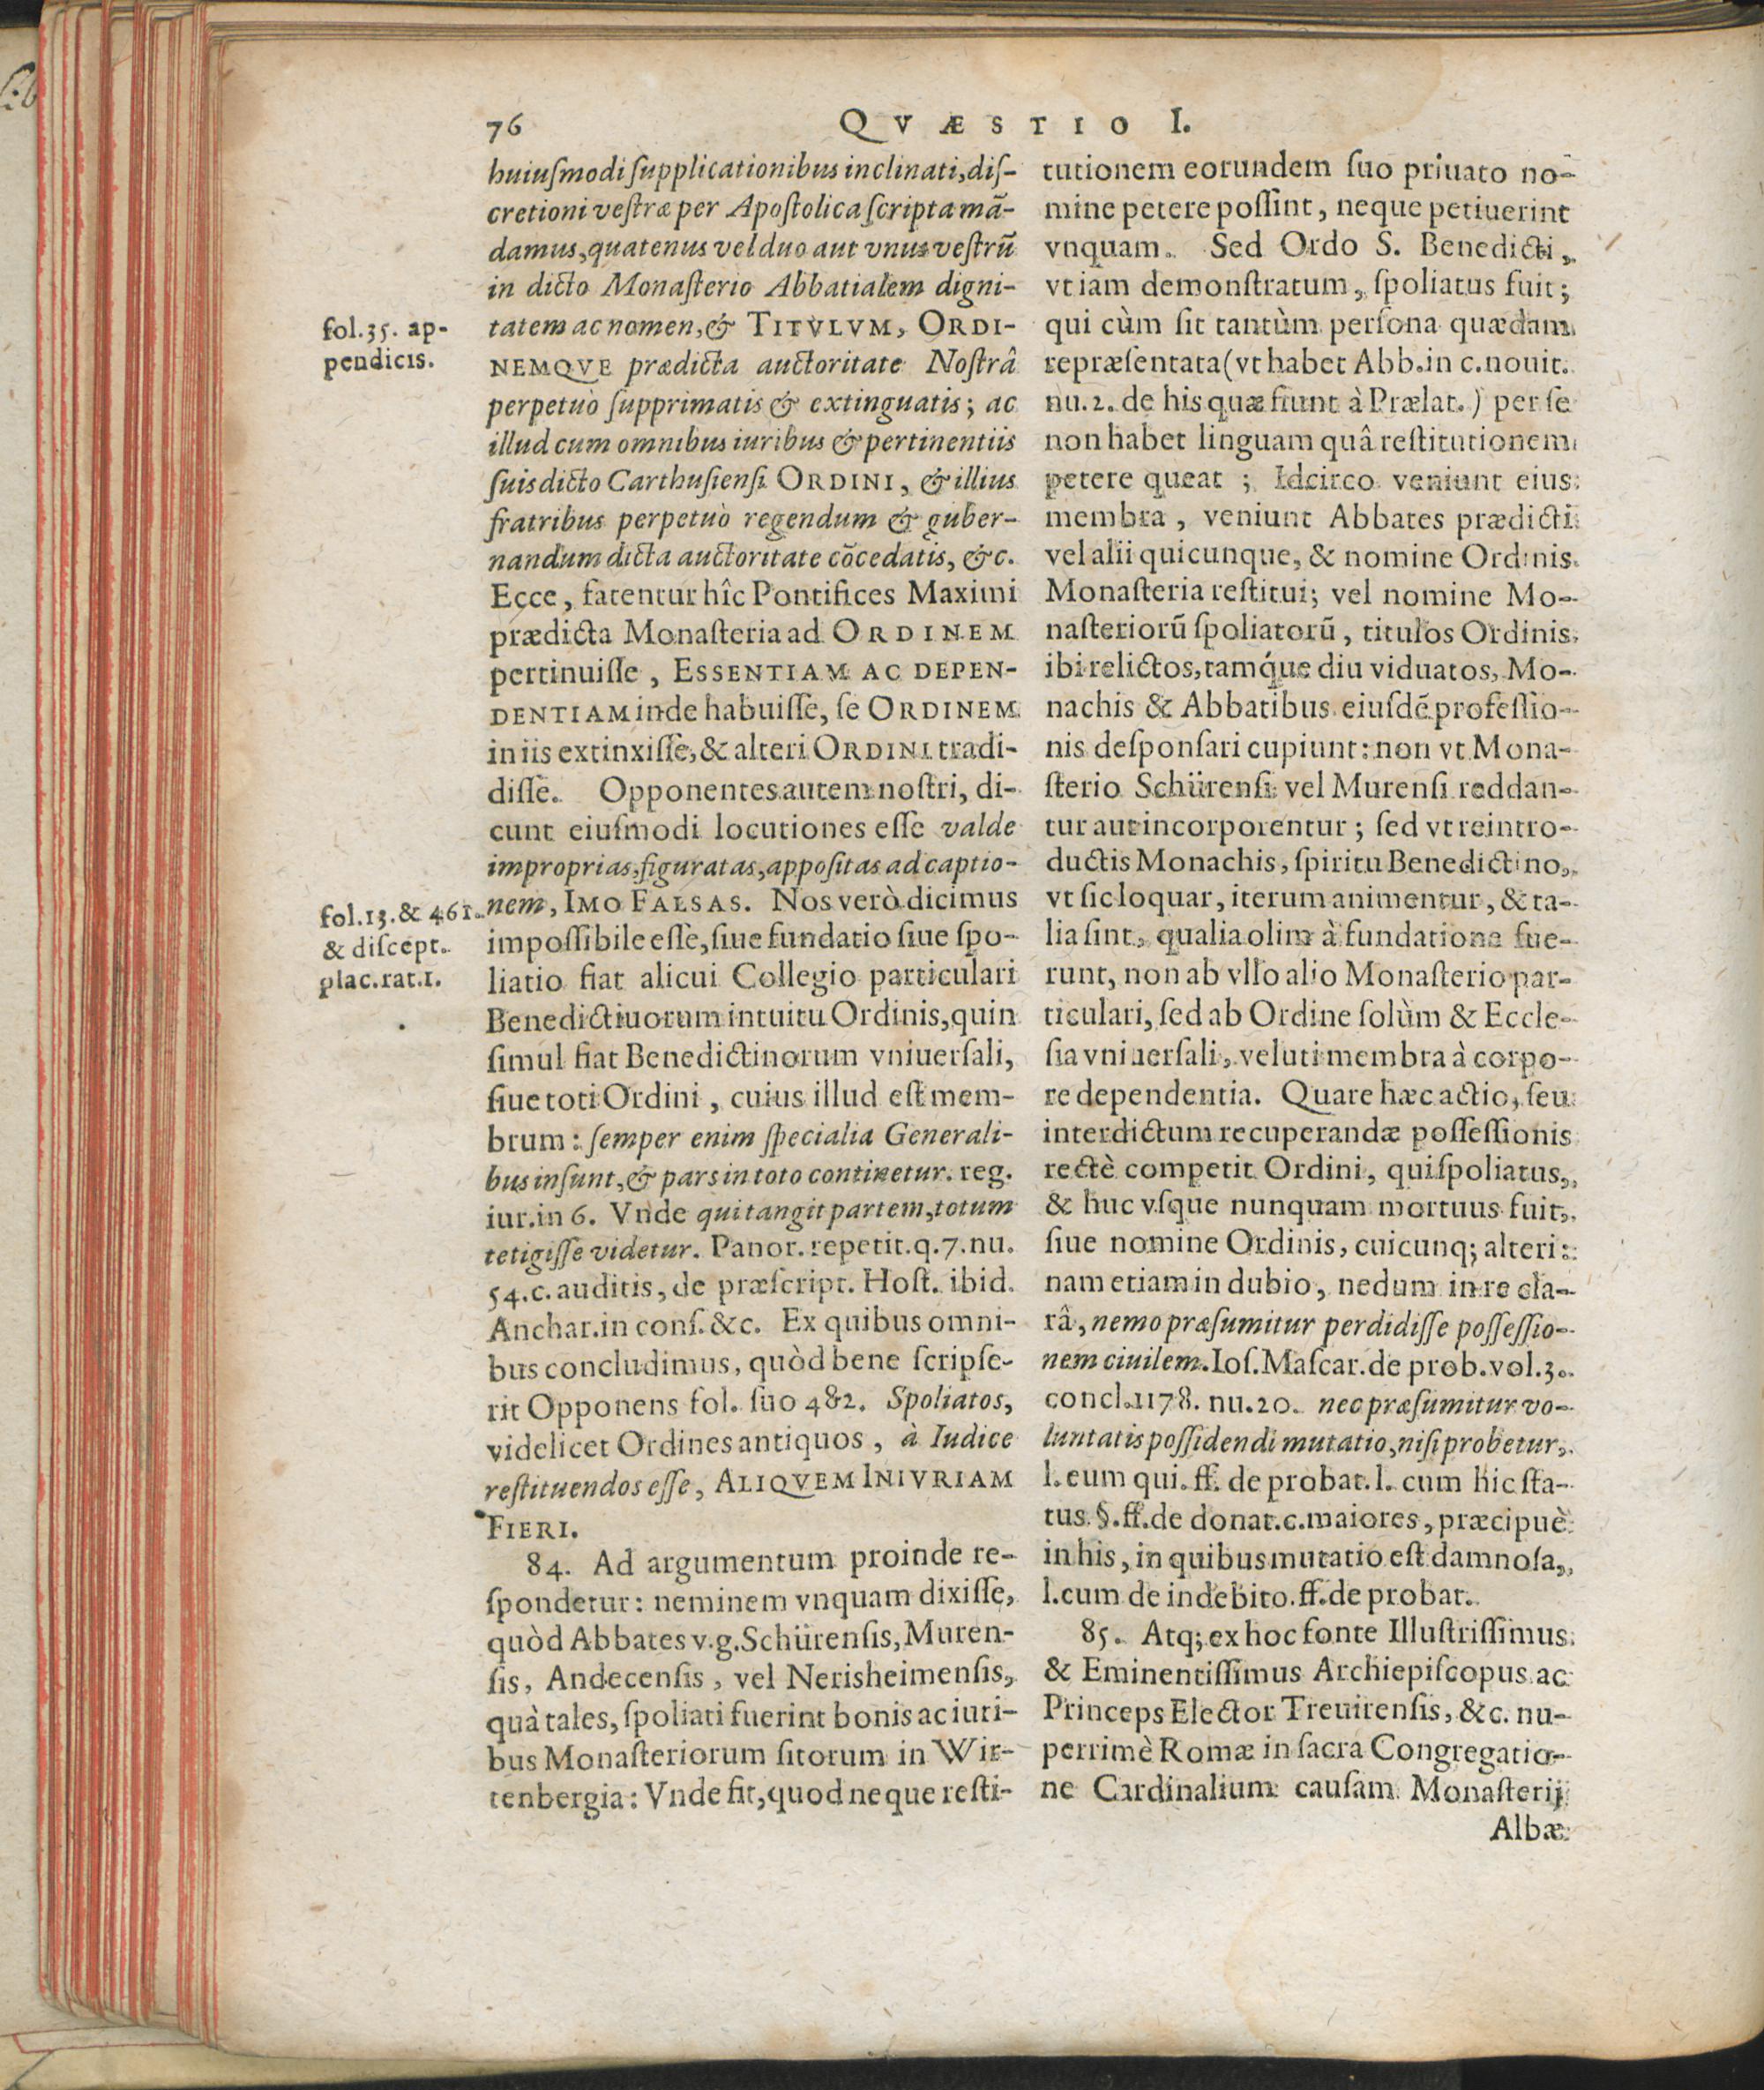 76
QVÆSTIO I.
huiuſmodi ſupplicationibus inclinati, diſ-
cretioni veſtræ per Apoſtolica ſcripta mã-
damus, quatenus vel duo aut vnus veſtrũ
in dicto Monaſterio Abbatialem digni-
tatem ac nomen, & TITVLVM, ORDI-
NEMQVE prædicta auctoritate Noſtrâ
perpetuò ſupprimatis & extinguatis; ac
illud cum omnibus iuribus & pertinentiis
ſuis dicto Carthuſienſi ORDINI, & illius
fratribus perpetuò regendum & guber-
nandum dicta auctoritate cõcedatis, &c.
Ecce, fatentur hîc Pontifices Maximi
prædicta Monaſteria ad ORDINEM
pertinuiſſe, ESSENTIAM AC DEPEN-
DENTIAM inde habuiſſe, ſe ORDINEM
in iis extinxiſſe, & alteri ORDINI tradi-
diſſe. Opponentes autem noſtri, di-
cunt eiuſmodi locutiones eſſe valde
improprias, figuratas, appoſitas ad captio-
nem, IMO FALSAS. Nos verò dicimus
impoſſibile eſſe, ſiue fundatio ſiue ſpo-
liatio fiat alicui Collegio particulari
Benedictiuorum intuitu Ordinis, quin
ſimul fiat Benedictinorum vniuerſali,
ſiue toti Ordini, cuius illud eſt mem-
brum: ſemper enim ſpecialia Generali-
bus inſunt, & pars in toto continetur. reg.
iur. in 6. Vnde qui tangit partem, totum
tetigiſſe videtur. Panor. repetit. q. 7. nu.
54. c. auditis, de præſcript. Hoſt. ibid.
Anchar. in conſ. &c. Ex quibus omni-
bus concludimus, quòd bene ſcripſe-
rit Opponens fol. ſuo 482. Spoliatos,
videlicet Ordines antiquos, à Iudice
reſtituendos eſſe, ALIQVEM INIVRIAM
FIERI.
84. Ad argumentum proinde re-
ſpondetur: neminem vnquam dixiſſe,
quòd Abbates v. g. Schürenſis, Muren-
ſis, Andecenſis, vel Nerisheimenſis,
quà tales, ſpoliati fuerint bonis ac iuri-
bus Monaſteriorum ſitorum in Wir-
tenbergia: Vnde fit, quod neque reſti-
fol. 35. ap-
pendicis.
fol. 13. & 461.
& diſcept.
plac. rat. 1.
tutionem eorundem ſuo priuato no-
mine petere poſſint, neque petiuerint
vnquam. Sed Ordo S. Benedicti,
vt iam demonſtratum, ſpoliatus fuit;
qui cùm ſit tantùm perſona quædam
repræſentata (vt habet Abb. in c. nouit.
nu. 2. de his quæ fiunt à Prælat.) per ſe
non habet linguam quâ reſtitutionem
petere queat; Idcirco veniunt eius
membra, veniunt Abbates prædicti
vel alii quicunque, & nomine Ordinis
Monaſteria reſtitui; vel nomine Mo-
naſteriorũ ſpoliatorũ, titulos Ordinis
ibi relictos, tamq́ue diu viduatos, Mo-
nachis & Abbatibus eiuſdẽ profeſſio-
nis deſponſari cupiunt: non vt Mona-
ſterio Schürenſi vel Murenſi reddan-
tur aut incorporentur; ſed vt reintro-
ductis Monachis, ſpiritu Benedictino,
vt ſic loquar, iterum animentur, & ta-
lia ſint, qualia olim à fundatione fue-
runt, non ab vllo alio Monaſterio par-
ticulari, ſed ab Ordine ſolùm & Eccle-
ſia vniuerſali, veluti membra à corpo-
re dependentia. Quare hæc actio, ſeu
interdictum recuperandæ poſſeſſionis
rectè competit Ordini, qui ſpoliatus,
& huc vſque nunquam mortuus fuit,
ſiue nomine Ordinis, cuicunq; alteri:
nam etiam in dubio, nedum in re cla-
râ, nemo præſumitur perdidiſſe poſſeſſio-
nem ciuilem. Ioſ. Maſcar. de prob. vol. 3.
concl. 1178. nu. 20. nec præſumitur vo-
luntatis poſſidendi mutatio, niſi probetur,
l. eum qui. ff. de probat. l. cum hic ſta-
tus. §. ff. de donat. c. maiores, præcipuè
in his, in quibus mutatio eſt damnoſa,
l. cum de indebito. ff. de probat.
85. Atq; ex hoc fonte Illuſtriſſimus
& Eminentiſſimus Archiepiſcopus ac
Princeps Elector Treuirenſis, &c. nu-
perrimè Romæ in ſacra Congregatio-
ne Cardinalium cauſam Monaſterij
Albæ